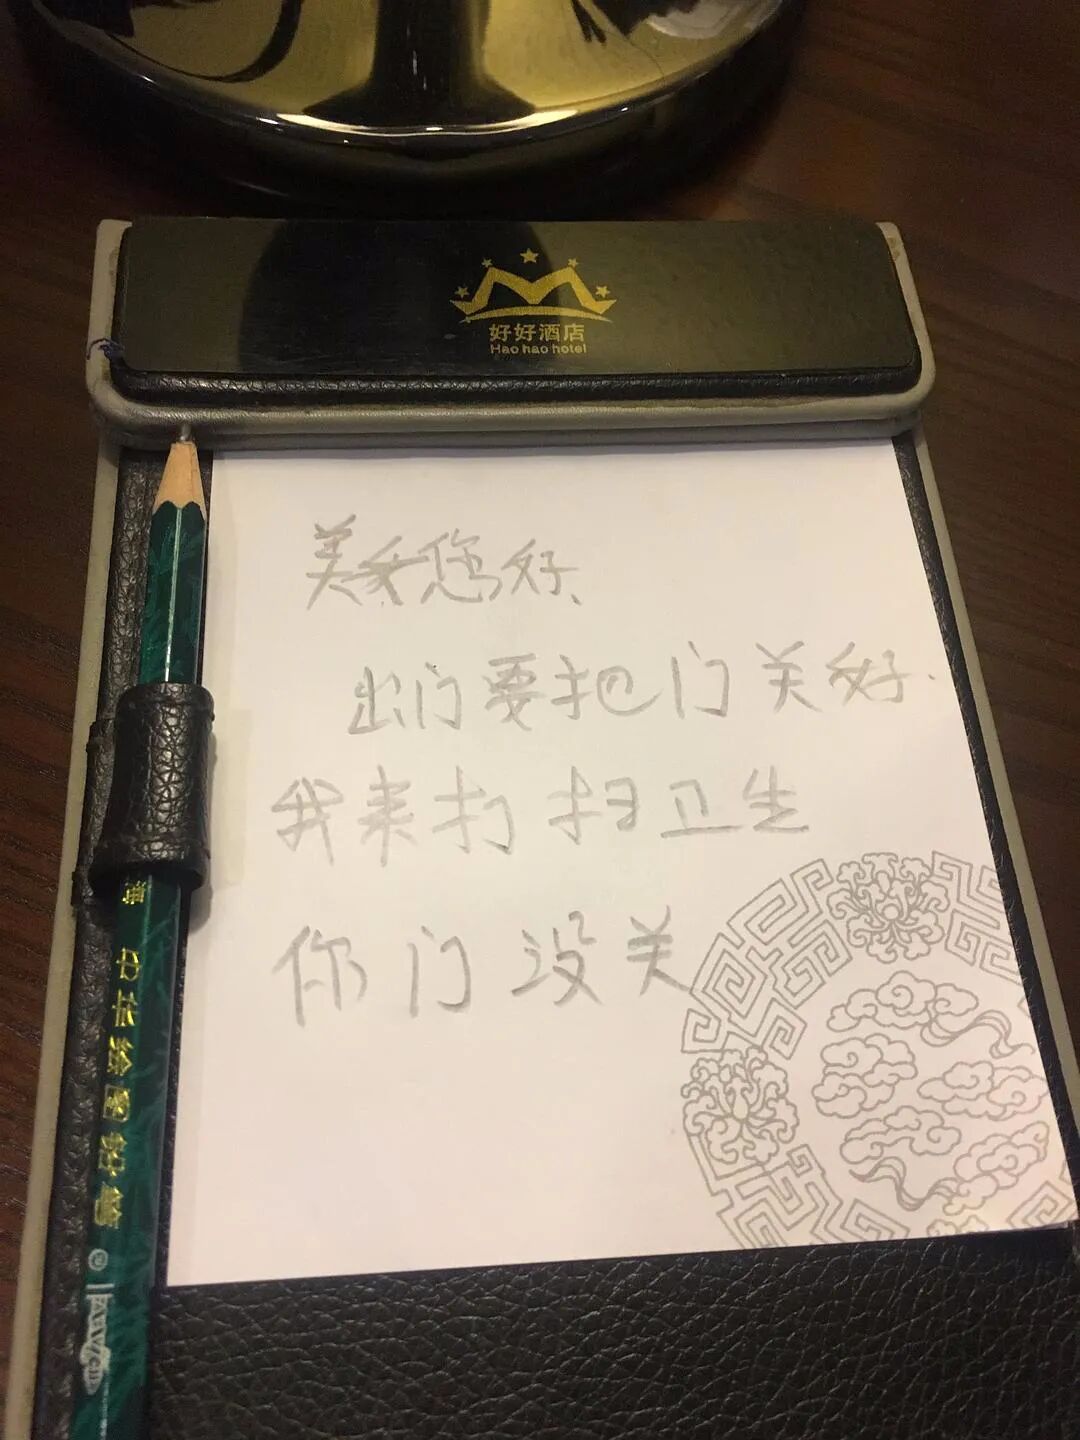 好好酒店
Hao hao hotel
美女您好、
出门要把门关好.
我来打扫卫生
你门没关
中华绘图铅笔